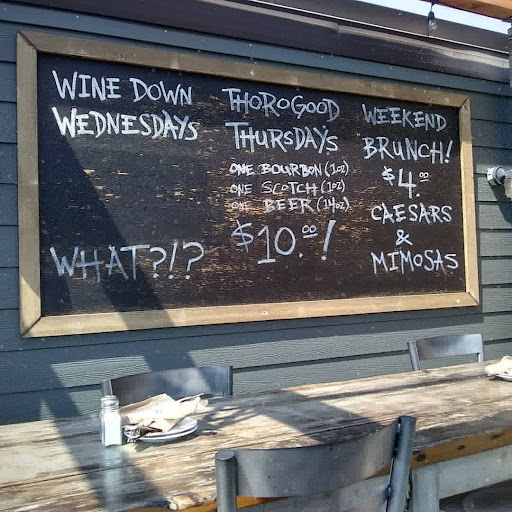 WINE DOWN
WEDNESDAYS
WHAT?!?
THOROGOOD
THURSDAYS
ONE BOURBON (1oz)
ONE SCOTCH (1oz)
ONE BEER (14oz)
$10.00!
WEEKEND
BRUNCH!
$4.00
CAESARS
&
MIMOSAS